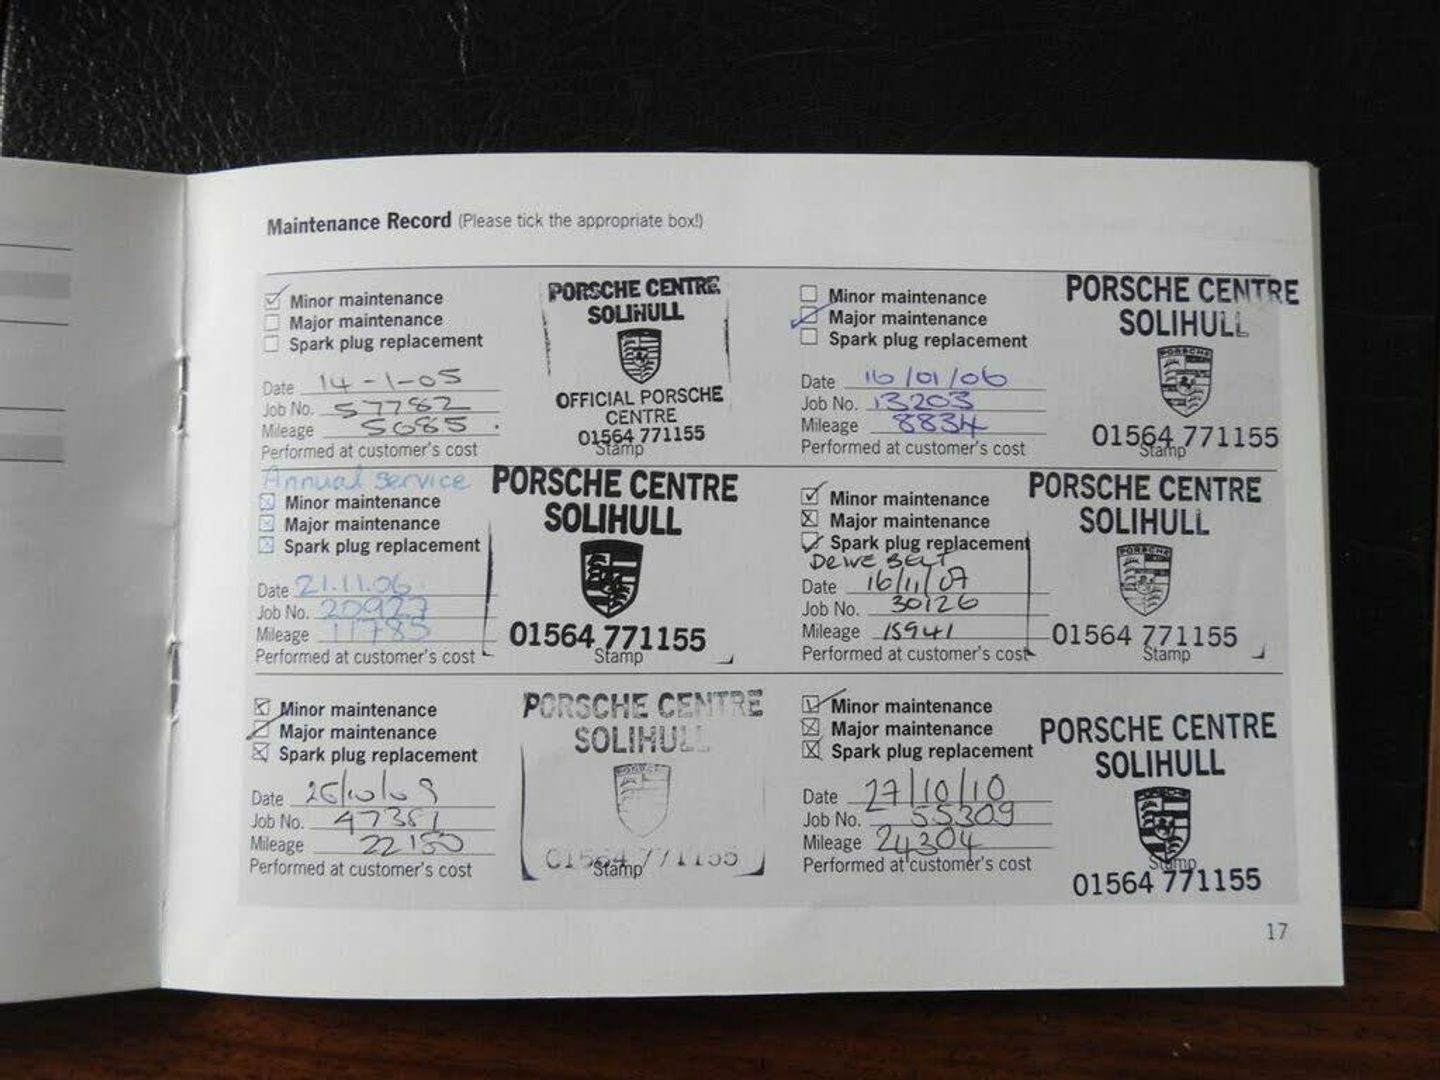 Maintenance Record (Please tick the appropriate box!)
Minor maintenance
Major maintenance
Spark plug replacement
Date 14-1-05
Job No. 57782
Mileage 5085.
Performed at customer's cost
PORSCHE CENTRE
SOLIHULL
OFFICIAL PORSCHE
CENTRE
01564 771155
Stamp
Minor maintenance
Major maintenance
Spark plug replacement
Date 16/01/06
Job No. 13203
Mileage 8834
Performed at customer's cost
PORSCHE CENTRE
SOLIHULL
PORSCHE
01564 771155
Stamp
Annual service
Minor maintenance
Major maintenance
Spark plug replacement
Date 21.11.06.
Job No. 20927
Mileage 11785
Performed at customer's cost
PORSCHE CENTRE
SOLIHULL
01564 771155
Stamp
Minor maintenance
Major maintenance
Spark plug replacement
DRIVE BELT
Date 16/11/07
Job No. 30126
Mileage 15941
Performed at customer's cost
PORSCHE CENTRE
SOLIHULL
PORSCHE
01564 771155
Stamp
Minor maintenance
Major maintenance
Spark plug replacement
Date
Job No. 47381
Mileage 22150
Performed at customer's cost
PORSCHE CENTRE
SOLIHULL
PORSCHE
01564 771155
Stamp
Minor maintenance
Major maintenance
Spark plug replacement
Date 27/10/10
Job No. 55309
Mileage 24304
Performed at customer's cost
PORSCHE CENTRE
SOLIHULL
PORSCHE
Stamp
01564 771155
17